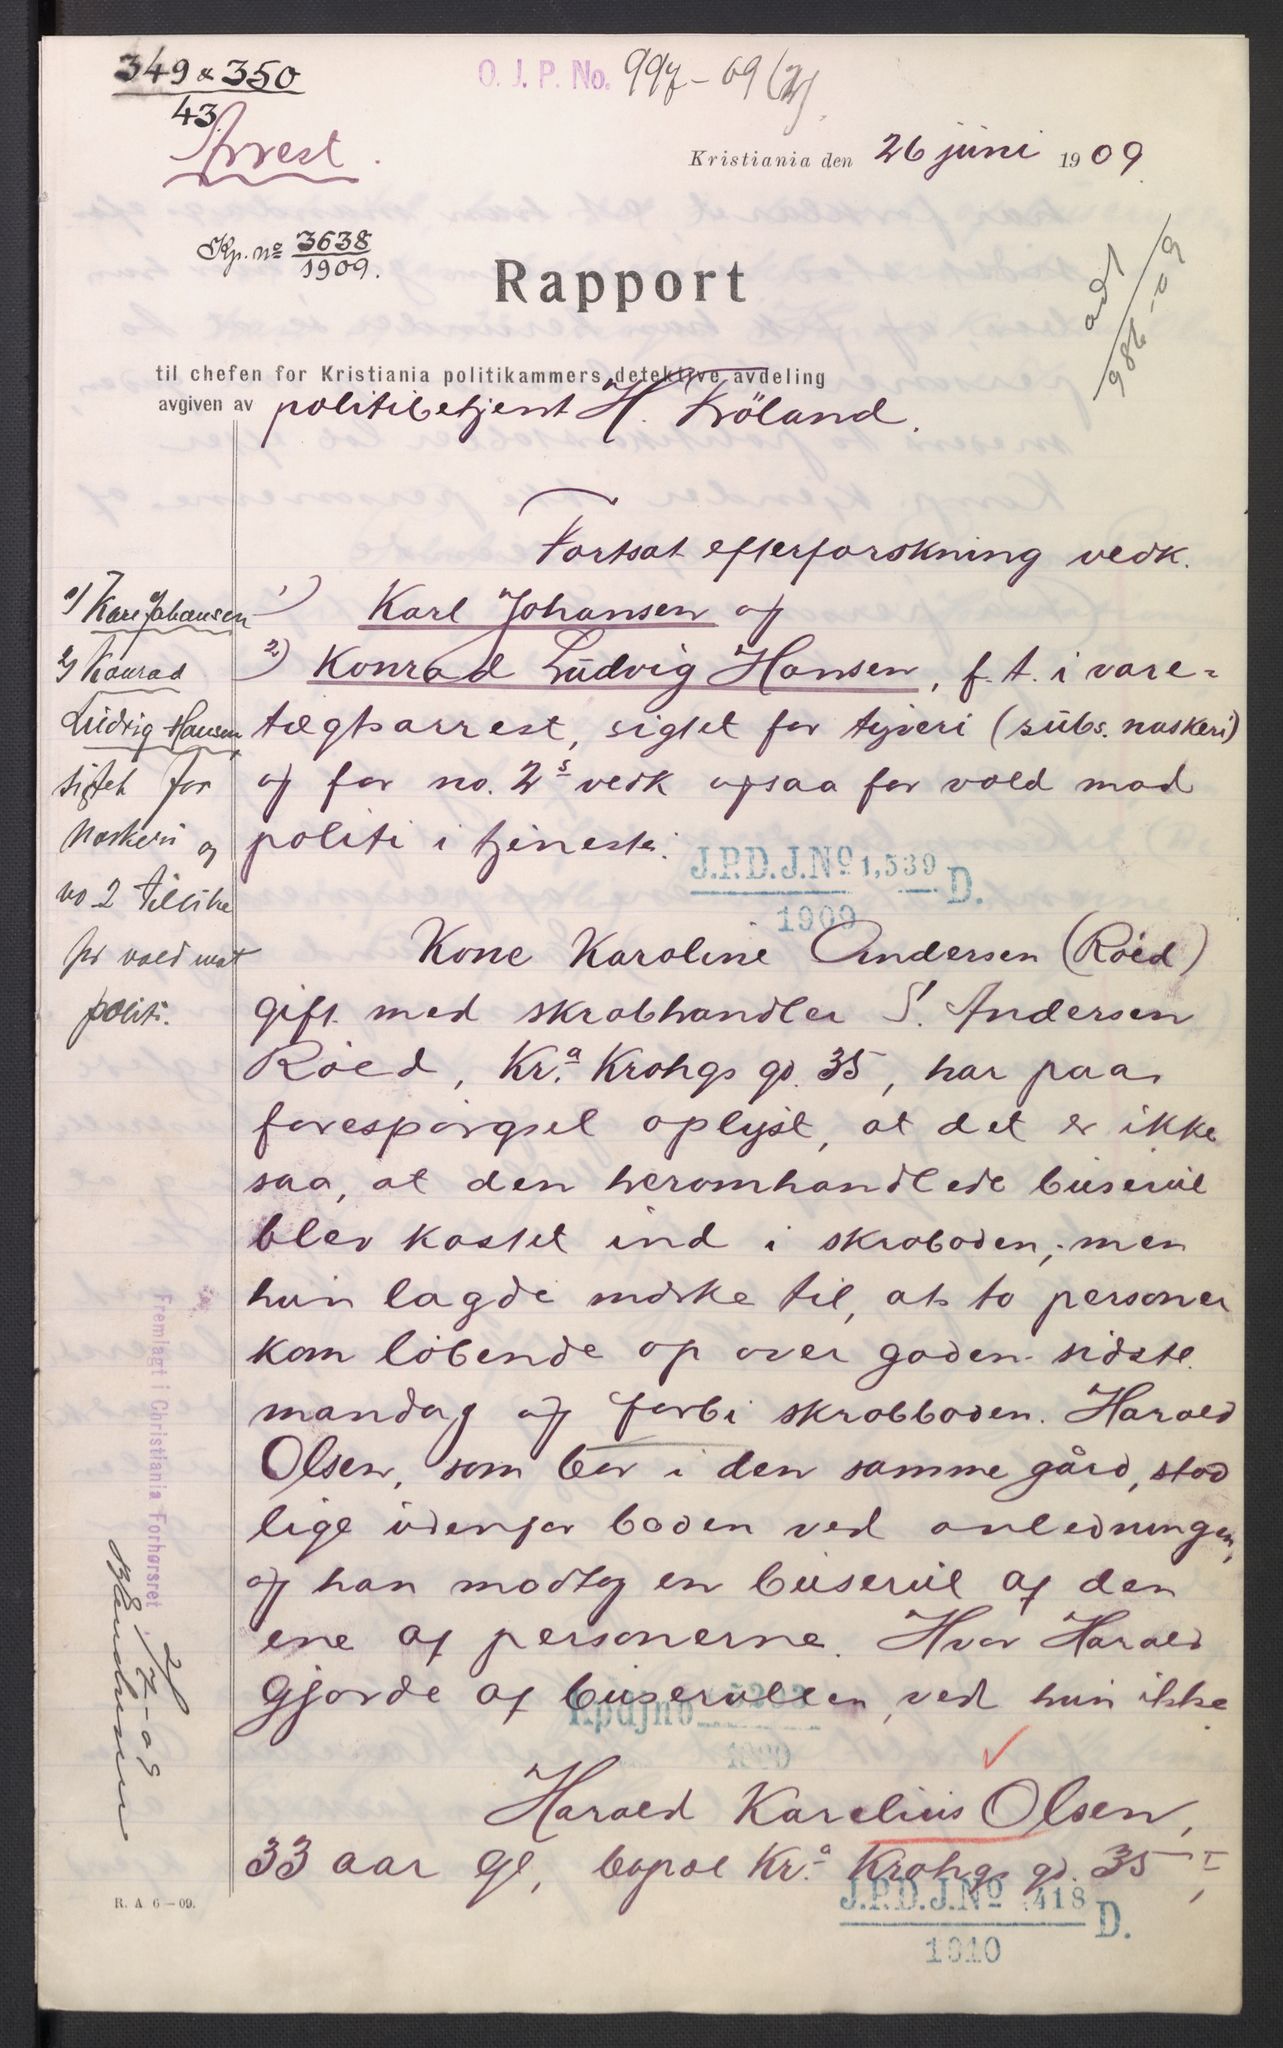 349 & 350
43
O. J. P. No. 997-09 (2)
Arrest.
Kristiania den 26 juni 1909.
Kp. no 3638
1909.
ad
986-09
Rapport
til chefen for Kristiania politikammers detektive avdeling
avgiven av politibetjent H. Fröland.
Fortsat efterforskning vedk.
1) Karl Johansen og
2) Konrad Ludvig Hansen, f. t. i vare-
tægtsarrest, sigtet for tyveri (subs. naskeri)
og for no. 2s vedk ogsaa for vold mod
politi i tjeneste.
1) Karl Johansen
2) Konrad
Ludvig Hansen,
sigtet for
naskeri og
no 2 tillike
for vold mot
politi.
J.P.D.J.No 1,539 D.
1909
Kone Karoline Andersen (Röed)
gift med skrabhandler S. Andersen
Röed, Kr.a Krohgs gd. 35, har paa
forespörgsel oplyst, at det er ikke
saa, at den heromhandlede buserul
blev kastet ind i skraboden; men
hun lagde mærke til, at to personer
kom löbende op over gaden sidste
mandag og forbi skrabboden. Harald
Olsen, som bor i den samme gård, stod
lige udenfor boden ved anledningen,
og han modtog en buserul af den
ene af personerne. Hvor Harald
gjorde af buserullen, ved hun ikke.
Kpdjno 5203
1909
Harald Karelius Olsen,
33 aar gl, bopæl Kr.a Krohgs gd. 35 I,
J.P.D.J.No 418 D.
1910
Fremlagt i Christiania Forhørsret
2/7-09
R. A. 6-09.